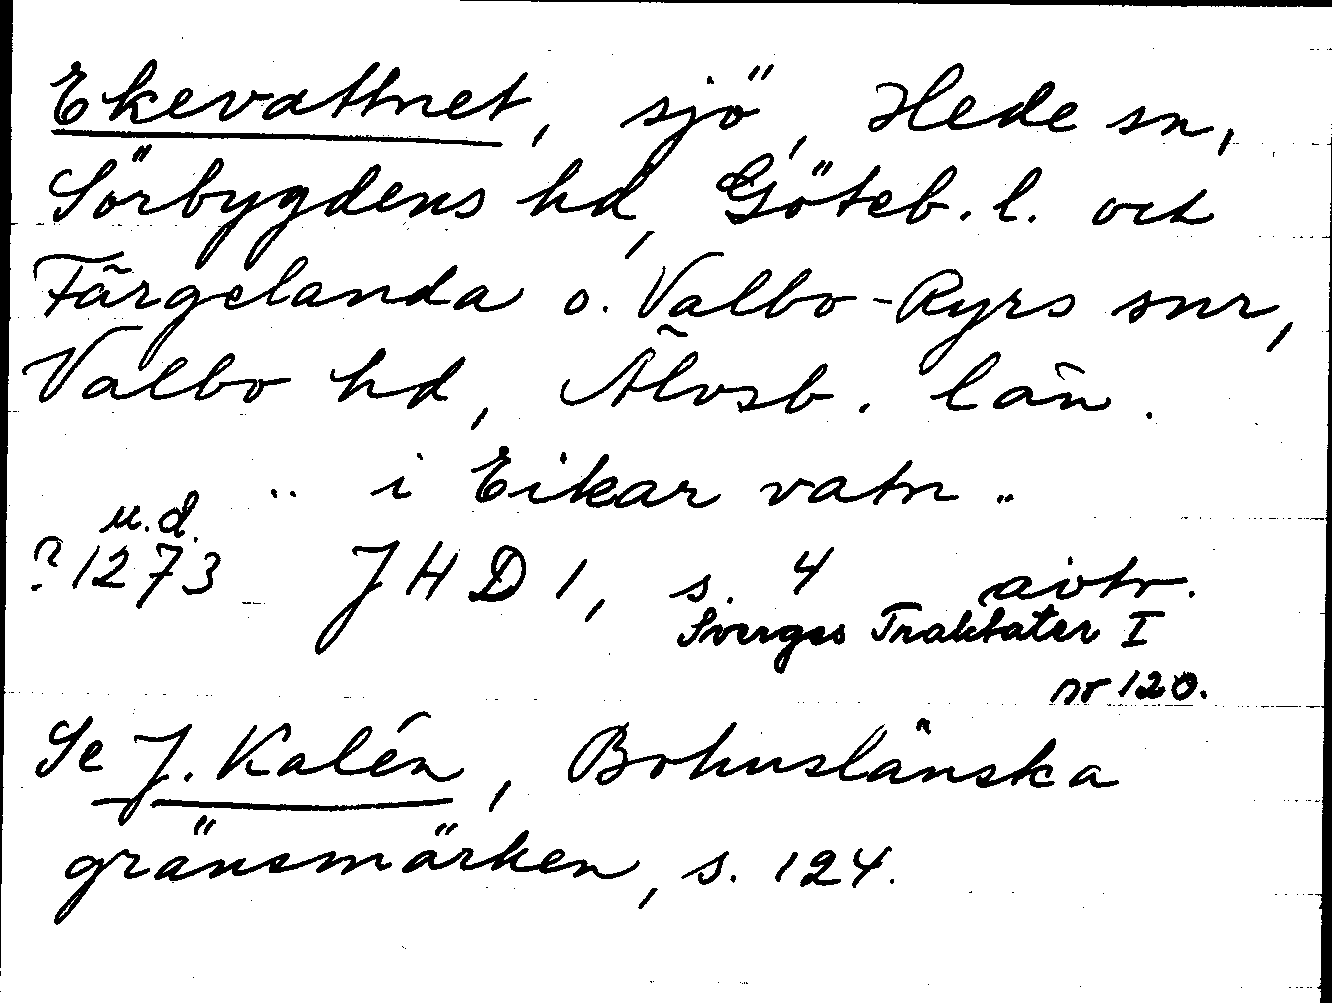 Ekevattnet, sjö, Hede sn,
Sörbygdens hd, Göteb. l. och
Färgelanda o. Valbo-Ryrs snr,
Valbo hd, Älvsb. län.
.. i Eikar vatn ..
u.d.
?1273 JHD 1, s. 4 avtr.
Sverges Traktater I
nr 120.
Se J. Kalén, Bohuslänska
gränsmärken, s. 124.